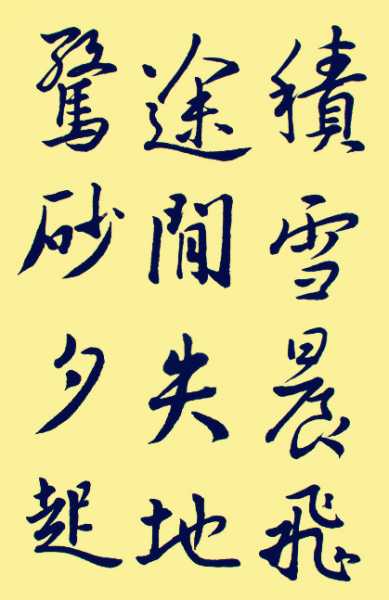 積雪晨飛
途閒失地
驚砂夕起